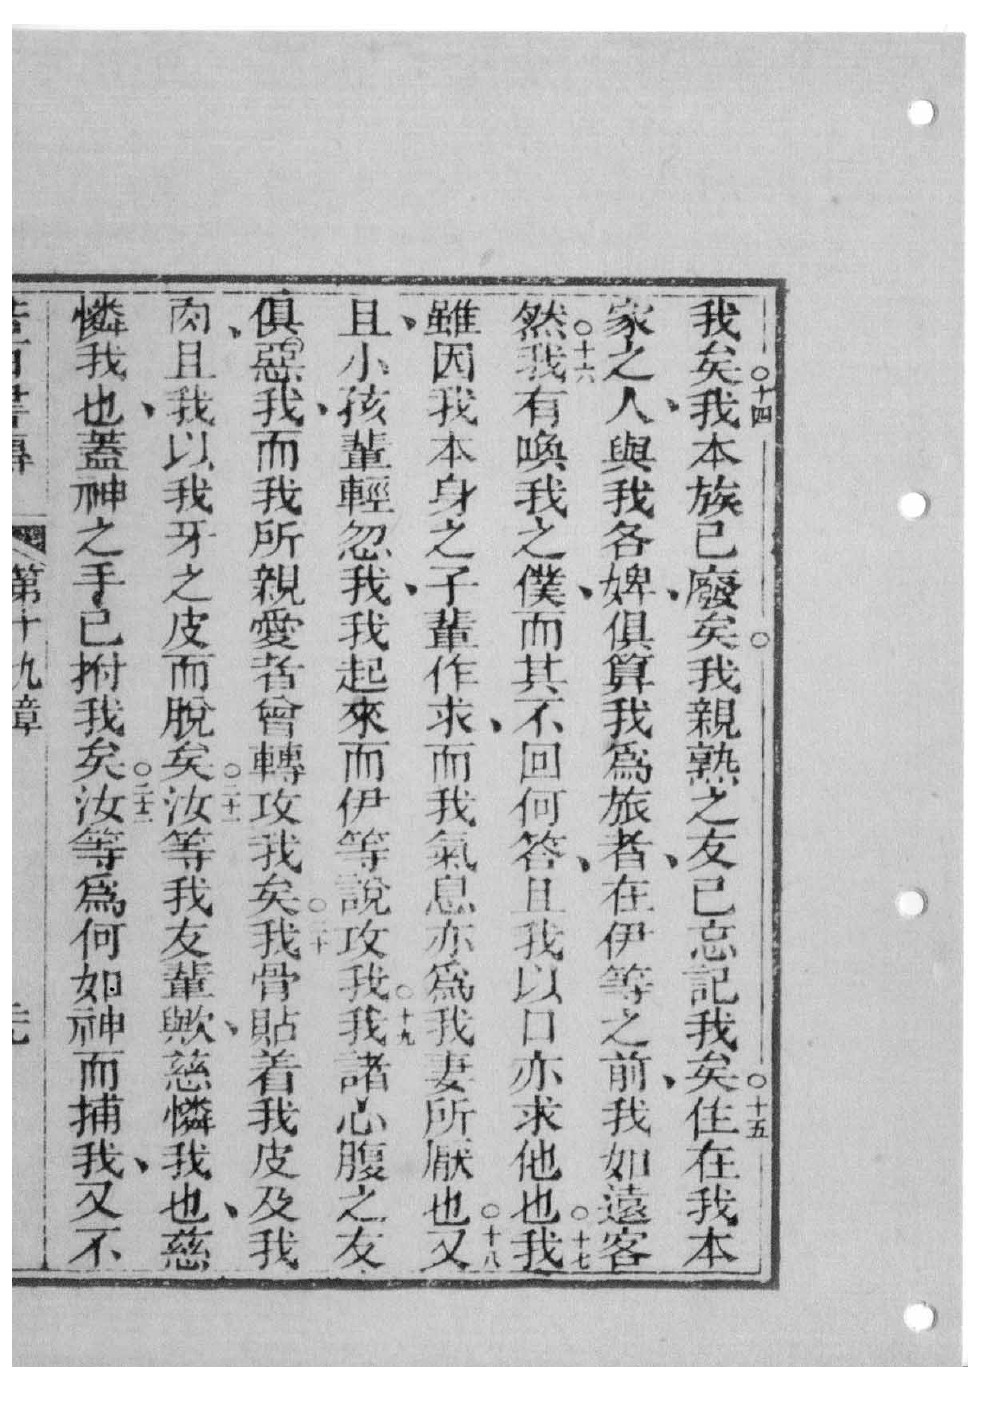 我矣○十四我本族已廢矣○我親熟之友已忘記我矣○十五住在我本
家之人、與我各婢、俱算我爲旅者、在伊等之前、我如遠客
然○十六我有喚我之僕、而其不回何答、且我以口亦求他也○十七我
雖因我本身之子輩作求、而我氣息亦爲我妻所厭也○十八又
且、小孩輩輕忽我、我起來而伊等說攻我○十九我諸心腹之友
俱惡我、而我所親愛者曾轉攻我矣○二十我骨貼着我皮及我
肉、且我以我牙之皮而脫矣○二十一汝等我友輩歟、慈憐我也、慈
憐我也、蓋神之手已拊我矣○二十二汝等爲何如神而捕我、又不
第十九章